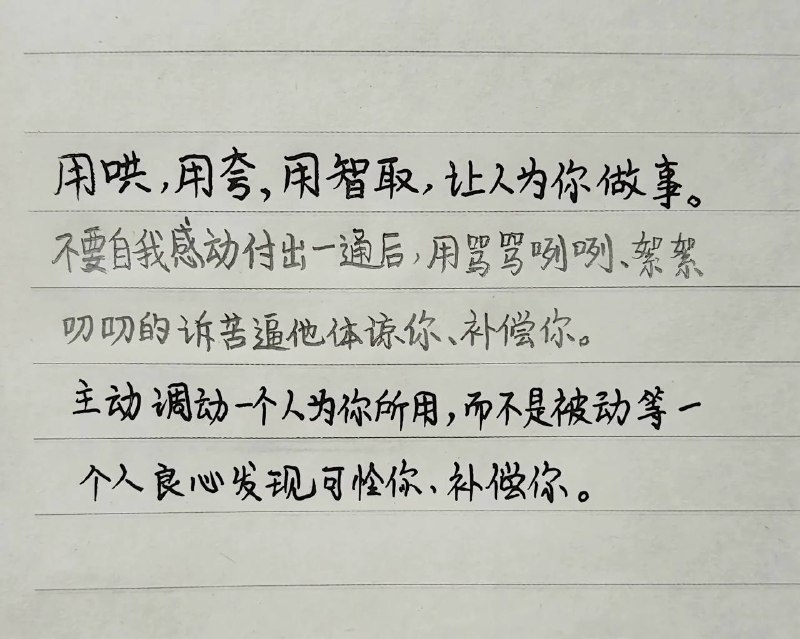 用哄,用夸,用智取,让人为你做事。
不要自我感动付出一通后,用骂骂咧咧、絮絮
叨叨的诉苦逼他体谅你、补偿你。
主动调动一个人为你所用,而不是被动等一
个人良心发现可怜你、补偿你。